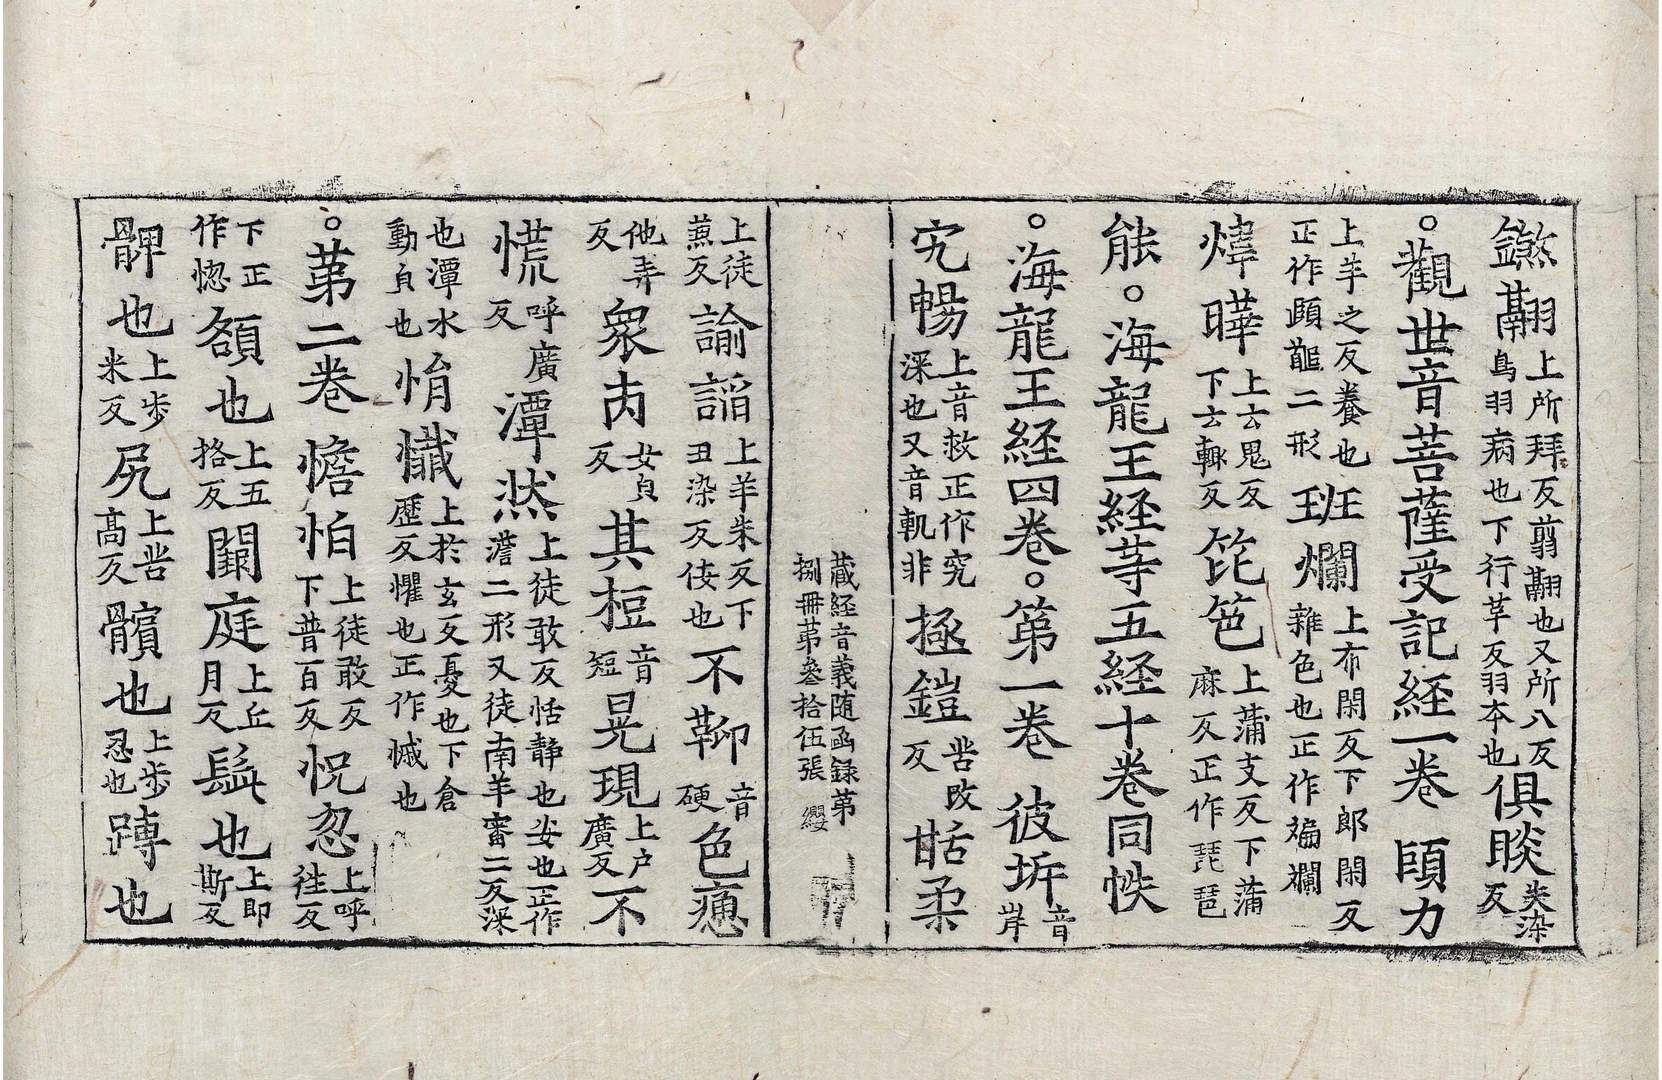 鎩翮上所拜反翦翮也又所八反鳥羽病也下行革反羽夲也俱睒失染反
。觀世音菩薩受記経一卷 頤力
上羊之反養也正作頤䪼二形班爛上布閑反下郎閑反雜色也正作斒斕
煒曄上云鬼反下云輙反笓笆上蒲支反下蒲麻反正作琵琶
能。海龍王経等五経十卷同帙
。海龍王経四卷。第一卷 彼坼音岸
究暢上音救正作究深也又音軌非拯鎧苦改反甛柔
蔵経音義随函録第捌冊第叁拾伍張 纓
上徒蒸反諭謟上羊朱反下丑染反佞也不鞕音硬色瘱
他弄反衆肉女六反其梪音短晃現上户廣反不
慌呼廣反潭然上徒敢反恬静也安也正作澹二形又徒南羊審二反深
也潭水動皃也悁懴上於玄反憂也下倉歷反懼也正作慽也
。第二卷 憺怕上徒敢反下普百反怳忽上呼往反
下正作惚額也上五挌反闚庭上丘月反髭也上即斯反
髀也上步米反尻上苦高反髕也上步忍也膞也